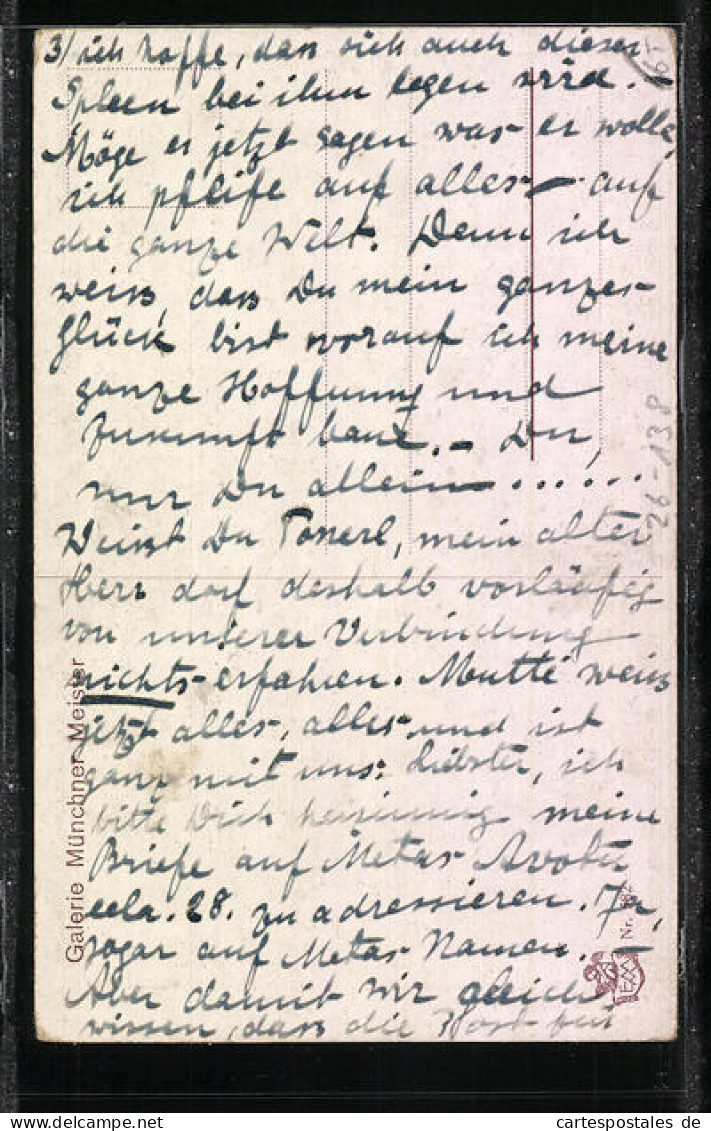 3/ ich hoffe, dass sich auch dieser
Spleen bei ihm legen wird.
Möge er jetzt sagen was er wolle,
ich pfeife auf alles – auf
die ganze Welt. Denn ich
weiss, dass Du mein ganzes
Glück bist worauf ich meine
ganze Hoffnung und
Zukunft baue. – Du,
nur Du allein – ......
Weisst Du Tonerl, mein alter
Herr darf deshalb vorläufig
von unserer Verbindung
nichts erfahren. Mutti weiss
jetzt alles, alles und ist
ganz mit uns. Liebster, ich
bitte Dich meine
Briefe auf Metas
28. zu adressieren. Ja,
sogar auf Metas Namen.
Aber damit wir gleich
wissen, dass die Post
Galerie Münchner Meister
Nr.
26-138
cartespostales de